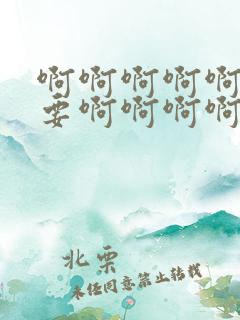 啊啊啊啊啊
要啊啊啊啊
北栗
未经同意禁止转载